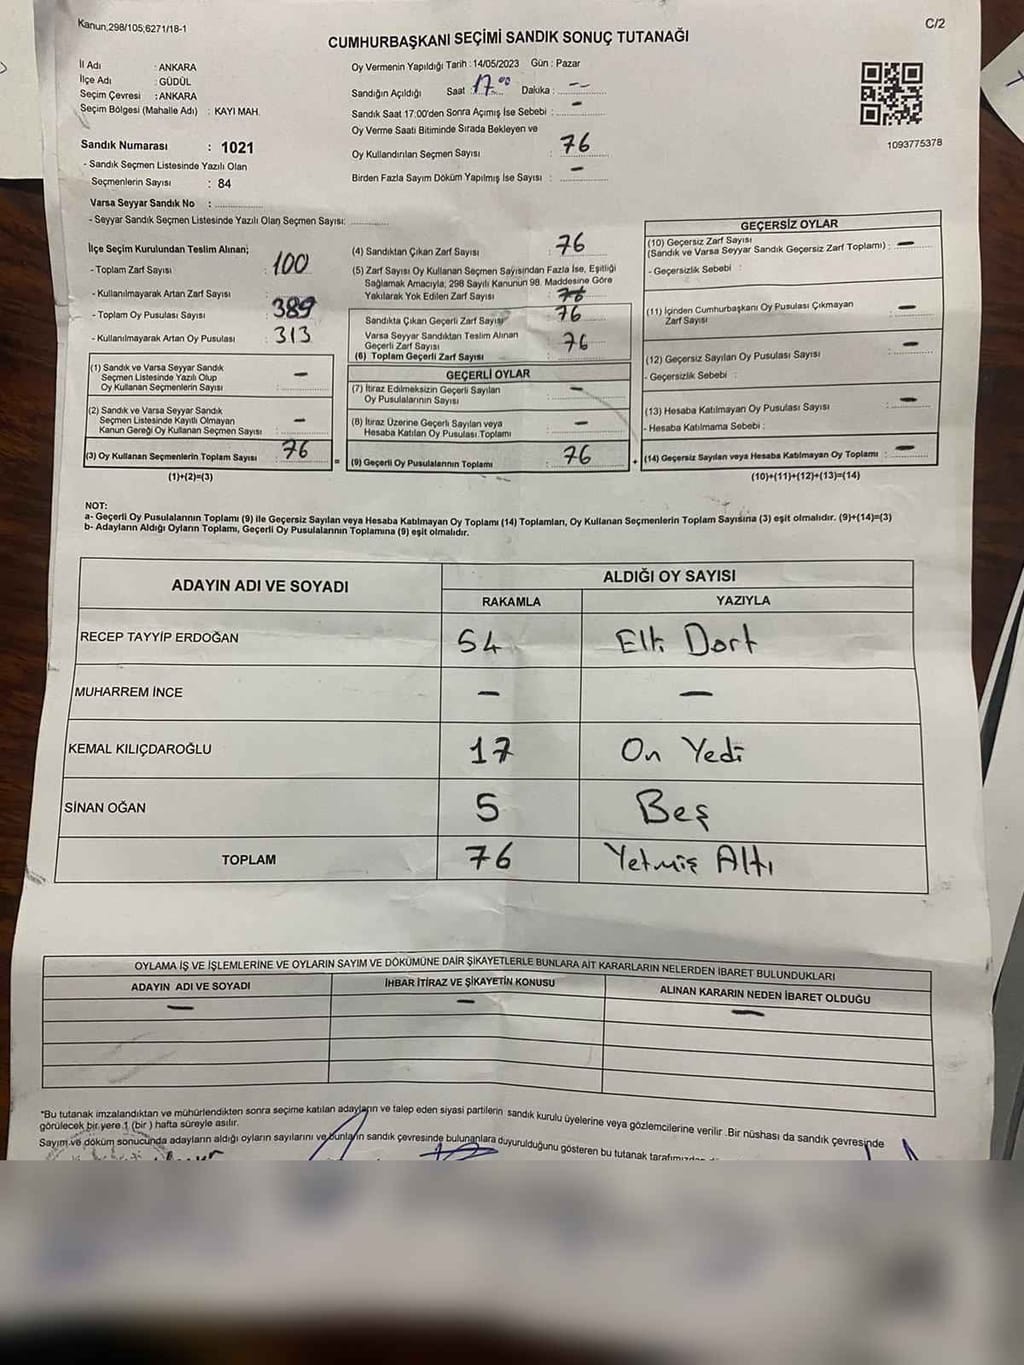 Kanun,298/105,6271/18-1
C/2
CUMHURBAŞKANI SEÇİMİ SANDIK SONUÇ TUTANAĞI
İl Adı : ANKARA
İlçe Adı : GÜDÜL
Seçim Çevresi : ANKARA
Seçim Bölgesi (Mahalle Adı) : KAYI MAH.
Sandık Numarası : 1021
- Sandık Seçmen Listesinde Yazılı Olan
Seçmenlerin Sayısı : 84
Varsa Seyyar Sandık No :
- Seyyar Sandık Seçmen Listesinde Yazılı Olan Seçmen Sayısı:
Oy Vermenin Yapıldığı Tarih : 14/05/2023 Gün : Pazar
Sandığın Açıldığı Saat : 17.00 Dakika : --
Sandık Saat 17:00'den Sonra Açımış İse Sebebi : -
Oy Verme Saati Bitiminde Sırada Bekleyen ve
Oy Kullandırılan Seçmen Sayısı : 76
Birden Fazla Sayım Döküm Yapılmış İse Sayısı : -
1093775378
İlçe Seçim Kurulundan Teslim Alınan;
- Toplam Zarf Sayısı : 100
- Kullanılmayarak Artan Zarf Sayısı :
- Toplam Oy Pusulası Sayısı : 389
- Kullanılmayarak Artan Oy Pusulası : 313
(1) Sandık ve Varsa Seyyar Sandık
Seçmen Listesinde Yazılı Olup
Oy Kullanan Seçmenlerin Sayısı : -
(2) Sandık ve Varsa Seyyar Sandık
Seçmen Listesinde Kayıtlı Olmayan
Kanun Gereği Oy Kullanan Seçmen Sayısı : -
(3) Oy Kullanan Seçmenlerin Toplam Sayısı : 76
(1)+(2)=(3)
(4) Sandıktan Çıkan Zarf Sayısı : 76
(5) Zarf Sayısı Oy Kullanan Seçmen Sayısından Fazla İse, Eşitliği
Sağlamak Amacıyla, 298 Sayılı Kanunun 98. Maddesine Göre
Yakılarak Yok Edilen Zarf Sayısı : 76
Sandıkta Çıkan Geçerli Zarf Sayısı : 76
Varsa Seyyar Sandıktan Teslim Alınan
Geçerli Zarf Sayısı : 76
(6) Toplam Geçerli Zarf Sayısı
GEÇERLİ OYLAR
(7) İtiraz Edilmeksizin Geçerli Sayılan
Oy Pusulalarının Sayısı : -
(8) İtiraz Üzerine Geçerli Sayılan veya
Hesaba Katılan Oy Pusulası Toplamı : -
= (9) Geçerli Oy Pusulalarının Toplamı : 76 +
GEÇERSİZ OYLAR
(10) Geçersiz Zarf Sayısı
(Sandık ve Varsa Seyyar Sandık Geçersiz Zarf Toplamı) : -
- Geçersizlik Sebebi :
(11) İçinden Cumhurbaşkanı Oy Pusulası Çıkmayan
Zarf Sayısı : -
(12) Geçersiz Sayılan Oy Pusulası Sayısı : -
- Geçersizlik Sebebi :
(13) Hesaba Katılmayan Oy Pusulası Sayısı : -
- Hesaba Katılmama Sebebi :
(14) Geçersiz Sayılan veya Hesaba Katılmayan Oy Toplamı : -
(10)+(11)+(12)+(13)=(14)
NOT:
a- Geçerli Oy Pusulalarının Toplamı (9) ile Geçersiz Sayılan veya Hesaba Katılmayan Oy Toplamı (14) Toplamları, Oy Kullanan Seçmenlerin Toplam Sayısına (3) eşit olmalıdır. (9)+(14)=(3)
b- Adayların Aldığı Oyların Toplamı, Geçerli Oy Pusulalarının Toplamına (9) eşit olmalıdır.
ADAYIN ADI VE SOYADI
ALDIĞI OY SAYISI
RAKAMLA YAZIYLA
RECEP TAYYİP ERDOĞAN 54 Elli Dört
MUHARREM İNCE - -
KEMAL KILIÇDAROĞLU 17 On Yedi
SİNAN OĞAN 5 Beş
TOPLAM 76 Yetmiş Altı
OYLAMA İŞ VE İŞLEMLERİNE VE OYLARIN SAYIM VE DÖKÜMÜNE DAİR ŞİKAYETLERLE BUNLARA AİT KARARLARIN NELERDEN İBARET BULUNDUKLARI
ADAYIN ADI VE SOYADI İHBAR İTİRAZ VE ŞİKAYETİN KONUSU ALINAN KARARIN NEDEN İBARET OLDUĞU
- - -
*Bu tutanak imzalandıktan ve mühürlendikten sonra seçime katılan adayların ve talep eden siyasi partilerin sandık kurulu üyelerine veya gözlemcilerine verilir .Bir nüshası da sandık çevresinde
görülecek bir yere 1 (bir ) hafta süreyle asılır.
Sayım ve döküm sonucunda adayların aldığı oyların sayılarını ve bunların sandık çevresinde bulunanlara duyurulduğunu gösteren bu tutanak tarafımızdan